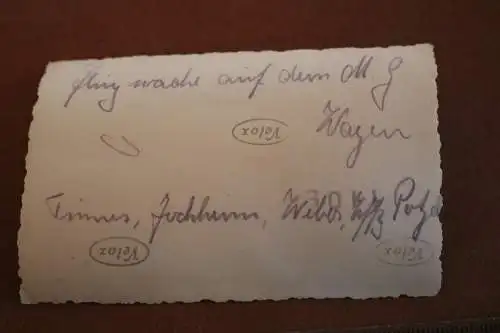 Flugwache auf dem M G
Wagen
Velox
Timmes, Jochheim, Weber, Uffz
Velox
Velox